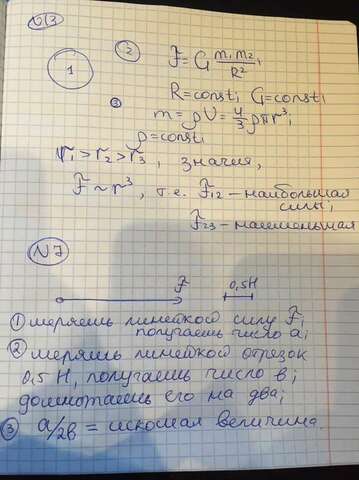 N3
1 2 F = G m₁m₂/R² ;
R = const; G = const;
3 m = ρV = 4/3 ρπr³;
ρ = const;
r₁ > r₂ > r₃, значия,
F ~ r³, т.е. F₁₂ – наибольшая
силы;
F₂₃ – наименьшая
N7
F 0,5Н
1 меряешь линейкой силу F;
получаешь число a;
2 меряшь линейкой отрезок
0,5 Н, получаешь число в;
домножаешь его на два;
3 a/2в = искомая величина.